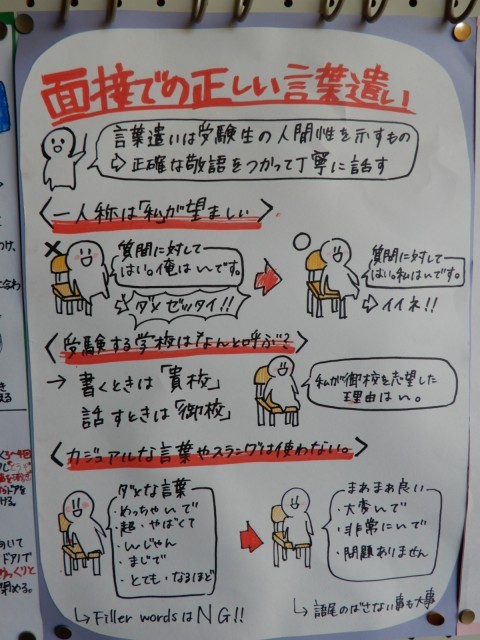 面接での正しい言葉遣い
言葉遣いは受験生の人間性を示すもの
⇨正確な敬語をつかって丁寧に話す
〈一人称は「私」が望ましい〉
質問に対して
はい。俺は〜いです。
⇨ダメゼッタイ!!
質問に対して
はい。私は〜いです。
⇨イイネ!!
〈受験する学校はなんと呼ぶ?〉
→ 書くときは「貴校」
話すときは「御校」
私が御校を志望した
理由は〜い。
〈カジュアルな言葉やスラングは使わない。〉
ダメな言葉
・めっちゃ〜いで
・超・やばくて
・〜んじゃん
・まじで
・とても・なるほど
↳Filler wordsはNG!!
まあまあ良い
・大変〜いで
・非常に〜いで
・問題ありません
↳語尾のばさない事も大事